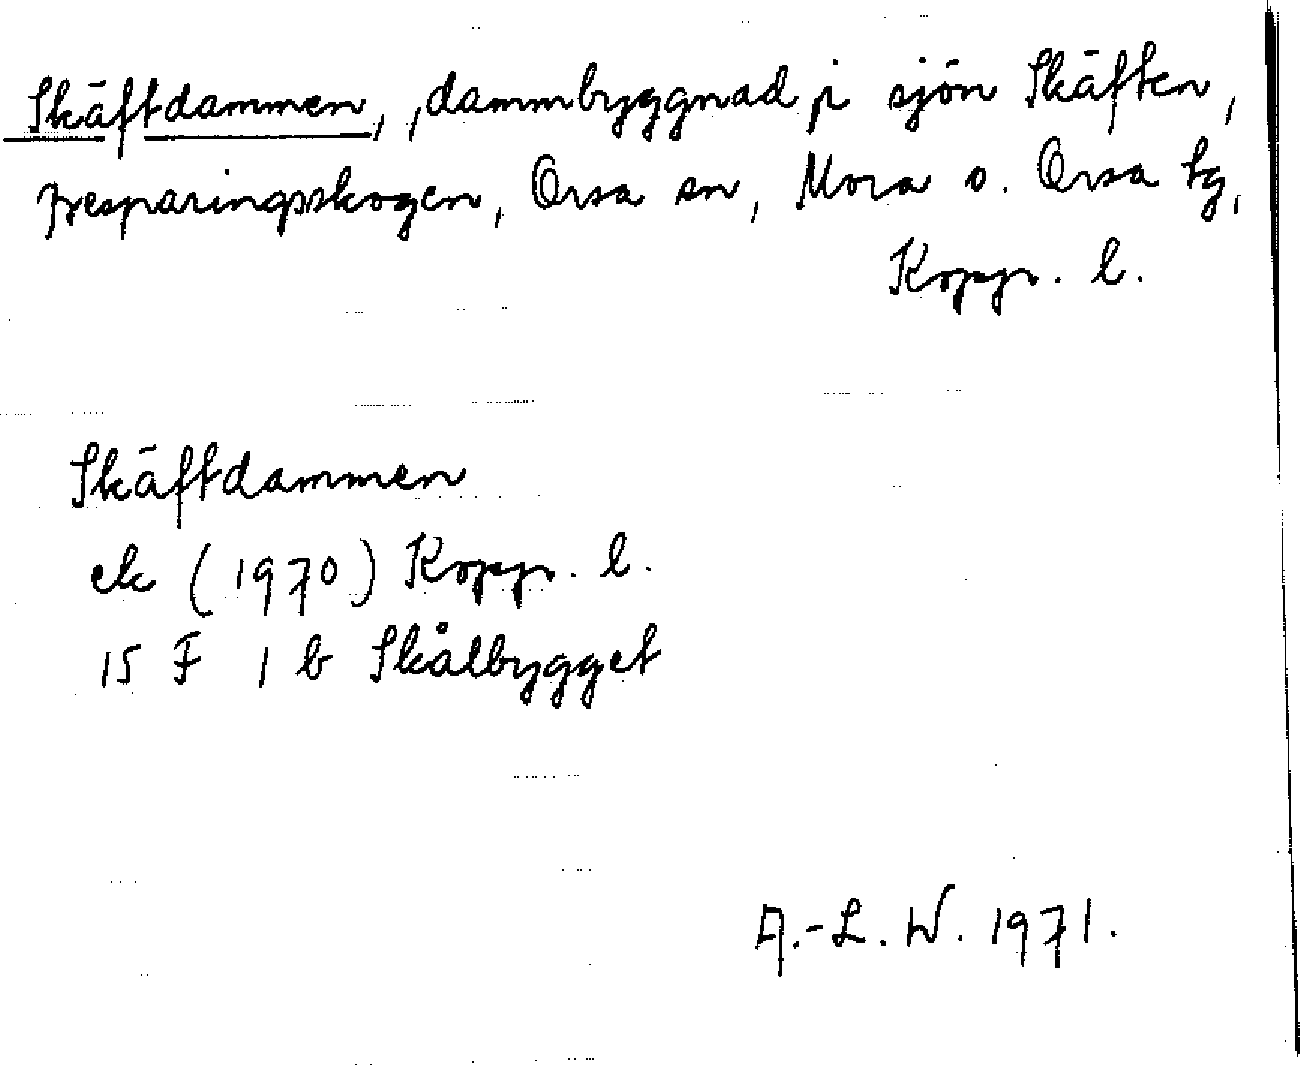 Skäftdammen, dammbyggnad i sjön Skäften,
Besparingsskogen, Orsa sn, Mora o. Orsa tg,
Kopp. l.
Skäftdammen
ek (1970) Kopp. l.
15 F 1 b Skålbygget
A.-L. W. 1971.